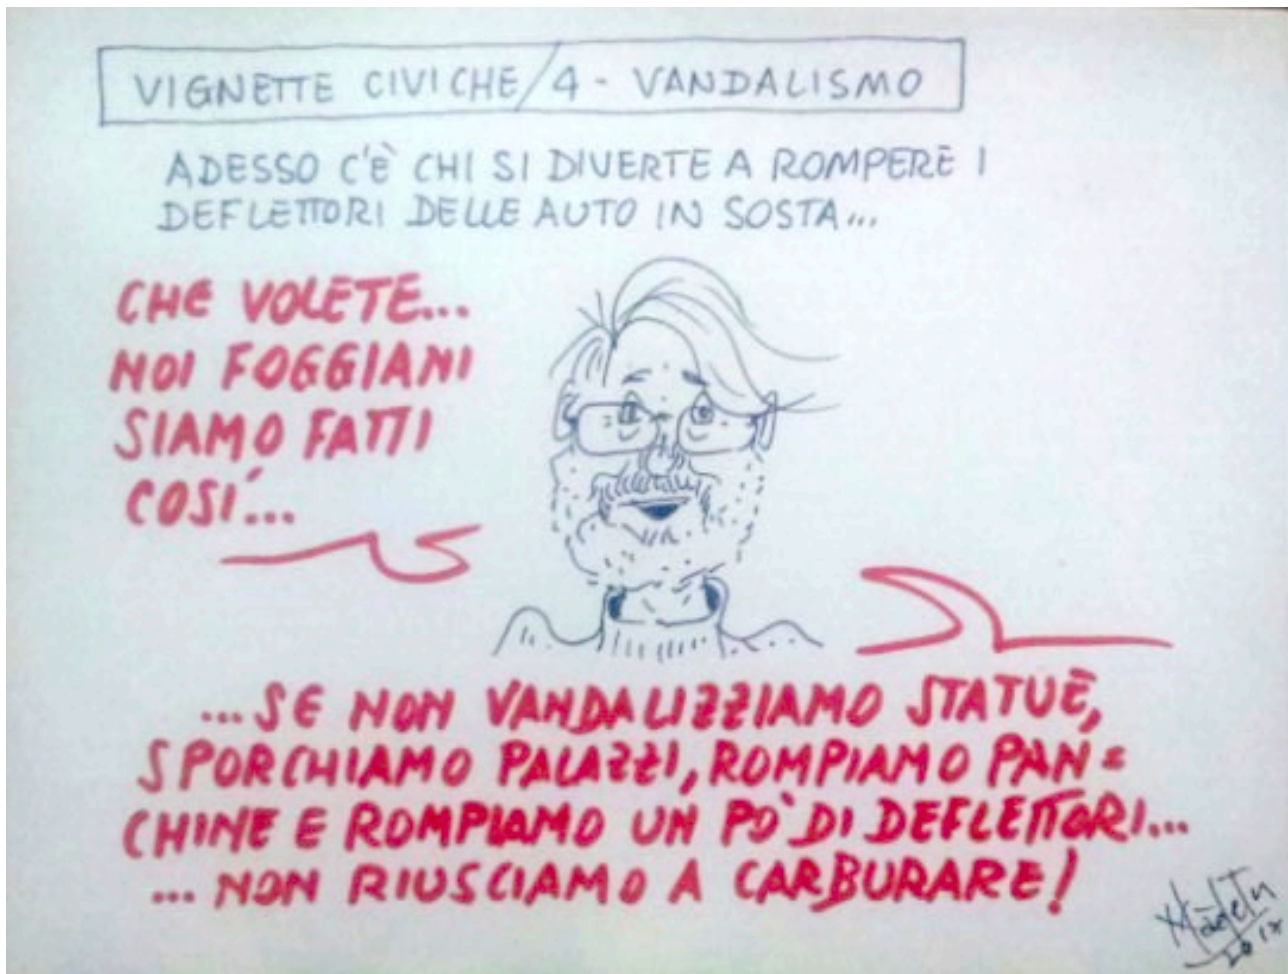 VIGNETTE CIVICHE/4 - VANDALISMO
ADESSO C'È CHI SI DIVERTE A ROMPERE I
DEFLETTORI DELLE AUTO IN SOSTA...
CHE VOLETE...
NOI FOGGIANI
SIAMO FATTI
COSÍ...
...SE NON VANDALIZZIAMO STATUE,
SPORCHIAMO PALAZZI, ROMPIAMO PAN=
CHINE E ROMPIAMO UN PÒ DI DEFLETTORI...
... NON RIUSCIAMO A CARBURARE!